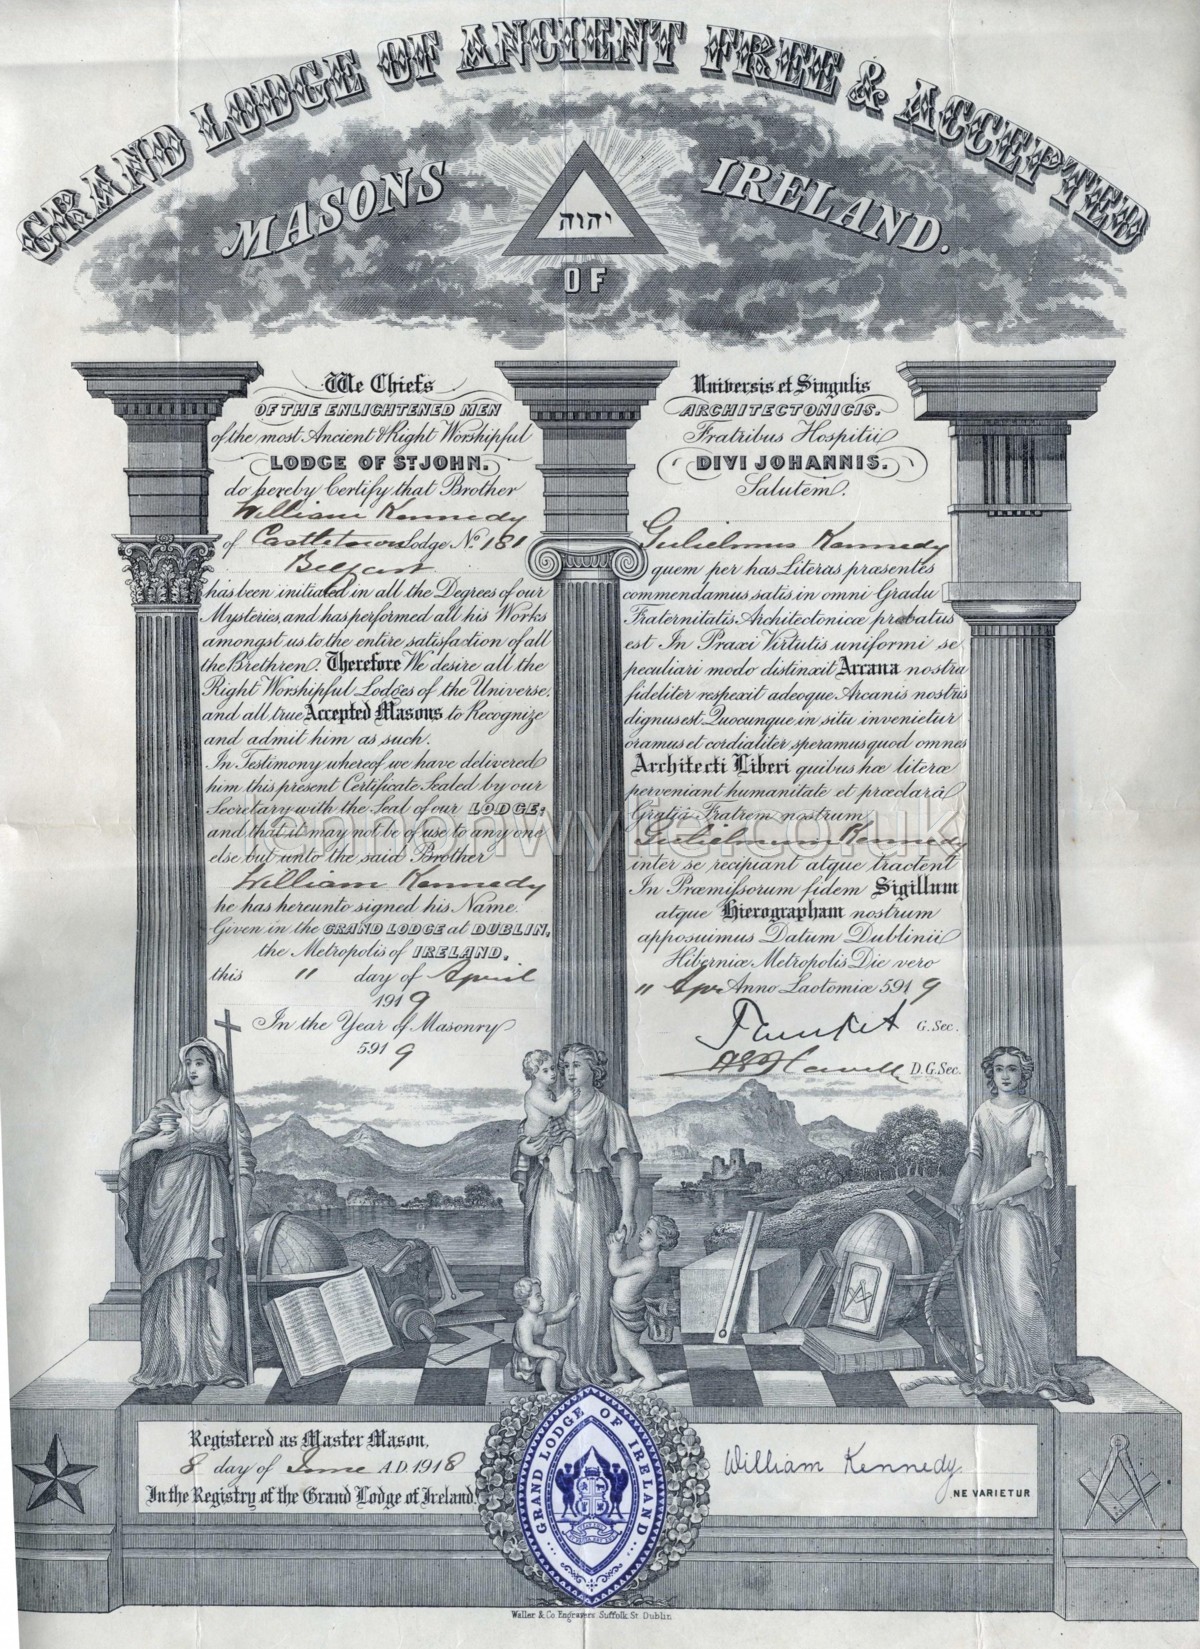 GRAND LODGE OF ANCIENT FREE & ACCEPTED
MASONS
יהוה
OF
IRELAND.
We Chiefs
OF THE ENLIGHTENED MEN
of the most Ancient & Right Worshipful
LODGE OF ST JOHN.
do hereby Certify that Brother
William Kennedy
of Castletown Lodge No. 181
Belfast
has been initiated in all the Degrees of our
Mysteries, and has performed all his Works
amongst us to the entire satisfaction of all
the Brethren. Therefore We desire all the
Right Worshipful Lodges of the Universe,
and all true Accepted Masons to Recognize
and admit him as such.
In Testimony whereof we have delivered
him this present Certificate Sealed by our
Secretary with the Seal of our LODGE;
and that it may not be of use to any one
else but unto the said Brother
William Kennedy
he has hereunto signed his Name.
Given in the GRAND LODGE at DUBLIN,
the Metropolis of IRELAND,
this 11 day of April
1919
In the Year of Masonry
5919
Universis et Singulis
ARCHITECTONICIS.
Fratribus Hospitii
DIVI JOHANNIS.
Salutem.
Gulielmus Kennedy
quem per has Literas præsentes
commendamus satis, in omni Gradu
Fraternitatis Architectonicæ probatus
est In Praxi Virtutis uniformi se
peculiari modo distinxit Arcana nostra
fideliter respexit adeoque Arcanis nostris
dignus est Quocunque in situ invenietur
oramus et cordialiter speramus quod omnes
Architecti Liberi quibus hæ literæ
perveniant humanitate et præclarâ
Gratiâ Fratrem nostrum
Gulielmum Kennedy
inter se recipiant atque tractent
In Præmissorum fidem Sigillum
atque Hierographam nostrum
apposuimus Datum Dublinii
Hiberniæ Metropolis Die vero
11 Apr Anno Laotomiæ 5919
G. Sec.
D. G. Sec.
Registered as Master Mason,
8 day of June A.D. 1918
In the Registry of the Grand Lodge of Ireland.
GRAND LODGE OF IRELAND
William Kennedy
NE VARIETUR
Waller & Co Engravers Suffolk St. Dublin
lennonwylie.co.uk